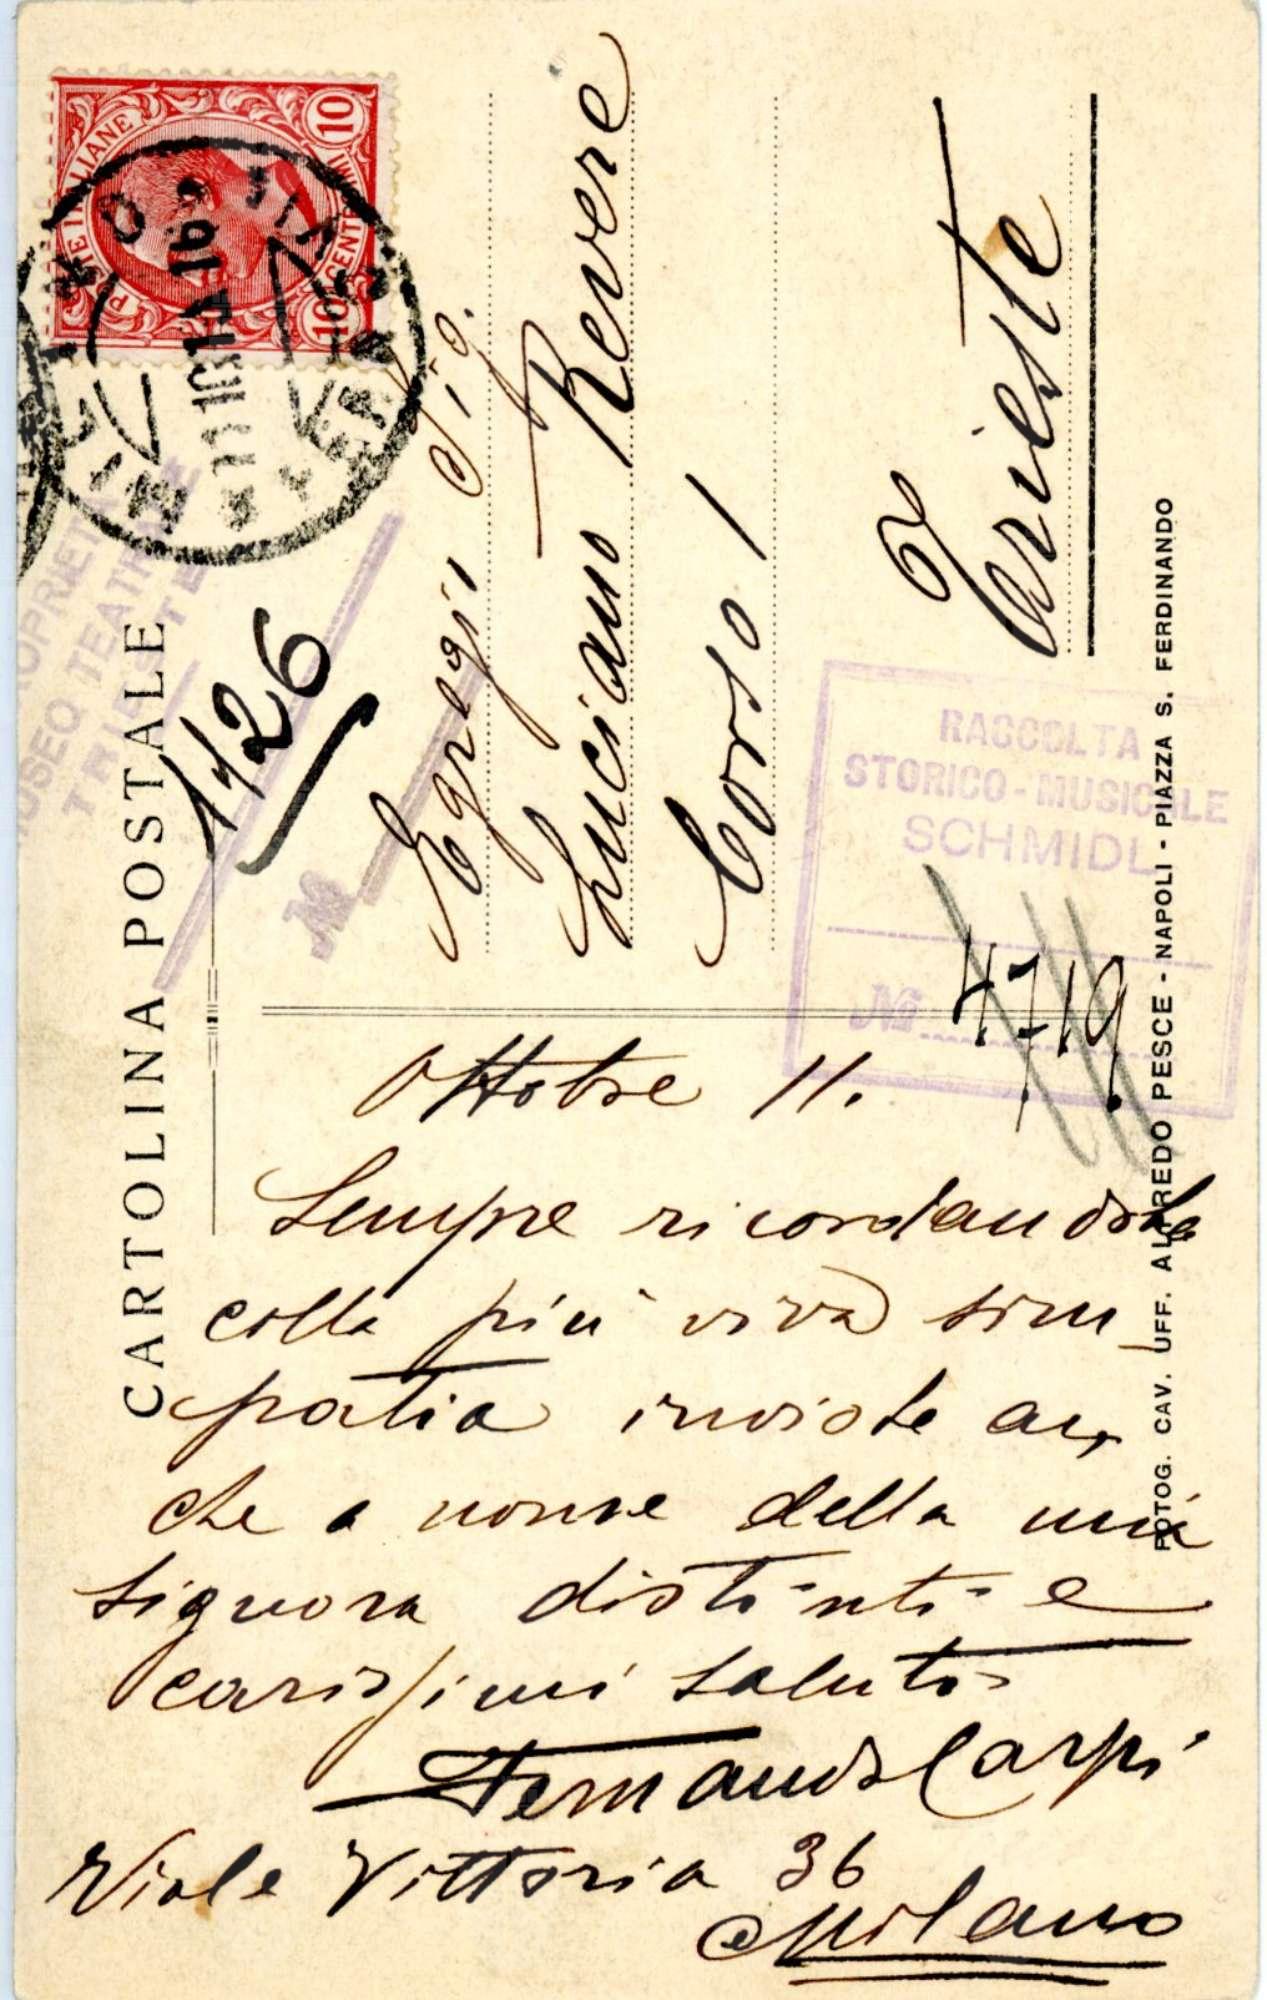 CARTOLINA POSTALE
POSTE ITALIANE
10
CENTESIMI
10
MILANO
PROPRIETÀ
MUSEO TEATRALE
TRIESTE
№
1426
Egregio Sig.
Luciano Revere
Corso 1
Trieste
RACCOLTA
STORICO-MUSICALE
SCHMIDL
№ 4719
Ottobre 11.
Sempre ricordandola
colla più viva sim-
patia inviole an-
che a nome della mia
signora distinti e
carissimi saluti
Fernando Carpi
Viale Vittoria 36
Milano
FOTOG. CAV. UFF. ALFREDO PESCE - NAPOLI - PIAZZA S. FERDINANDO